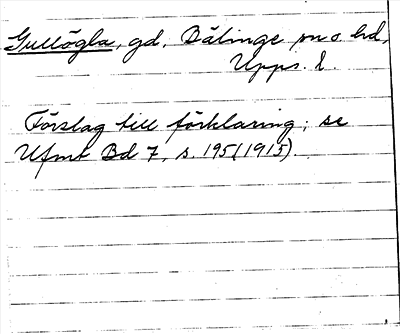 Gullögla, gd, Bälinge sn o hd,
Upps. l.
Förslag till förklaring; se
Ufmt Bd 7, s. 195 (1915).